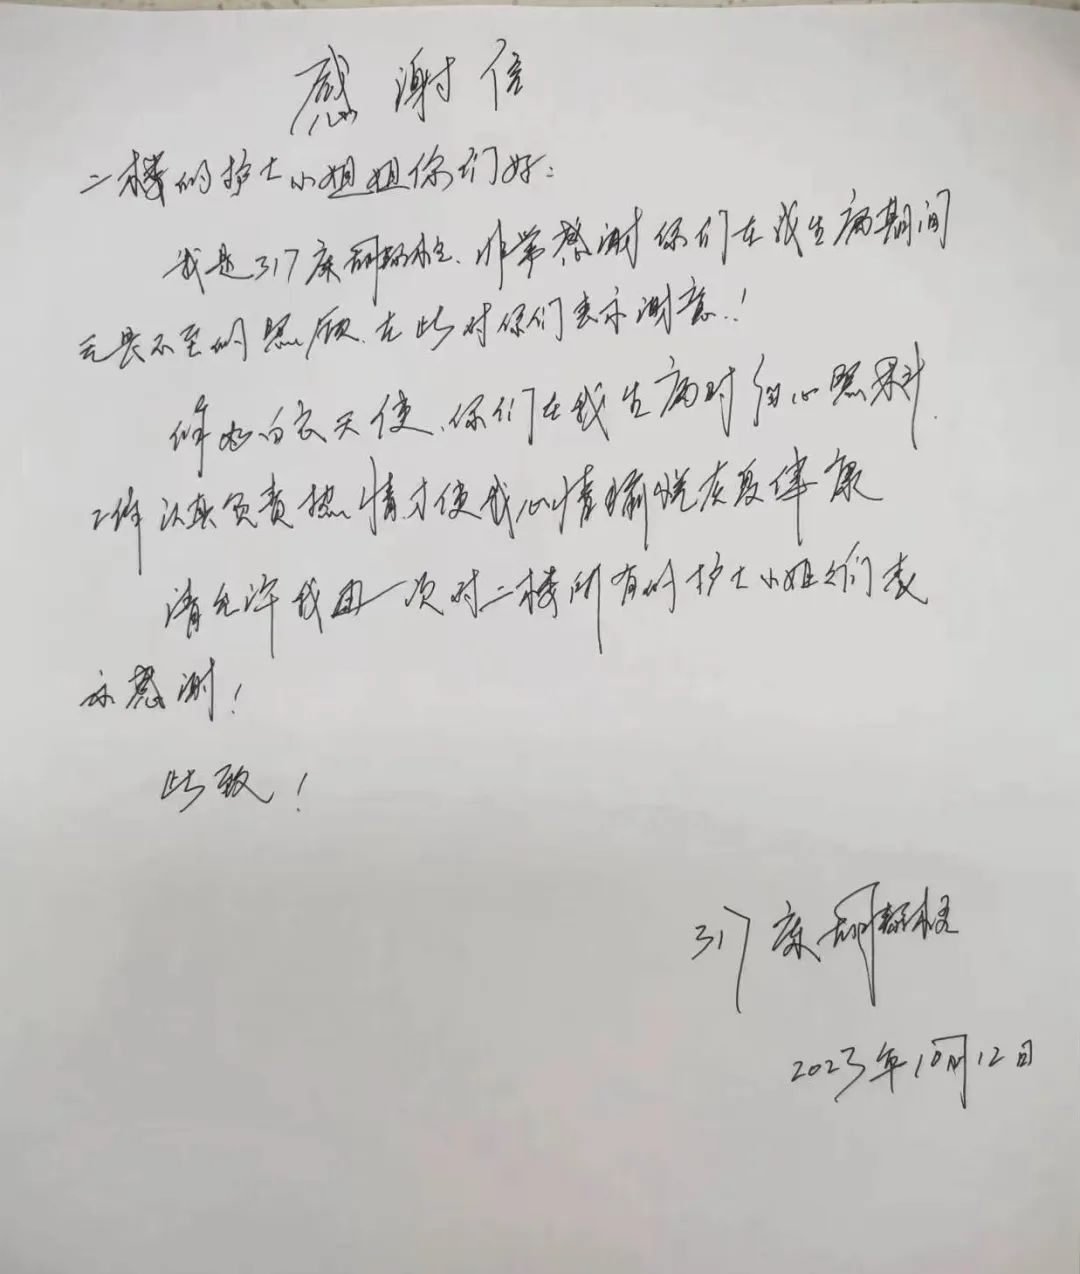 感谢信
二楼的护士小姐姐你们好:
我是317床 非常感谢你们在我生病期间
无畏不至的照顾.在此对你们表示谢意!
作为白衣天使、你们在我生病时细心照料
工作认真负责热情才使我心情愉悦恢复健康
请允许我再一次对二楼所有的护士小姐姐们表
示感谢!
此致!
317床
2023年10月12日